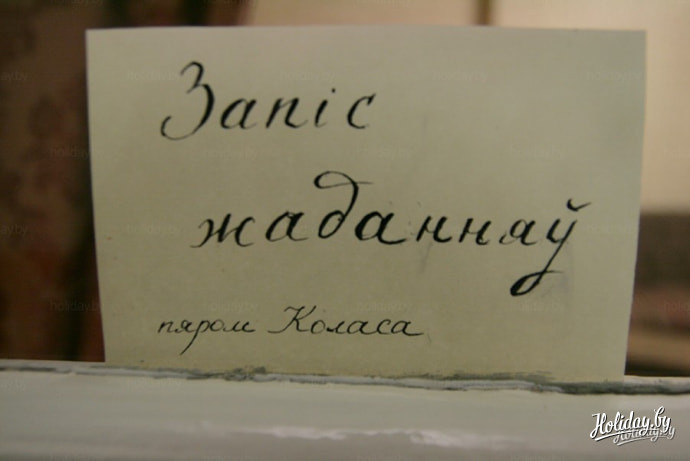 Запіс
жаданняў
пяром Коласа
Holiday.by